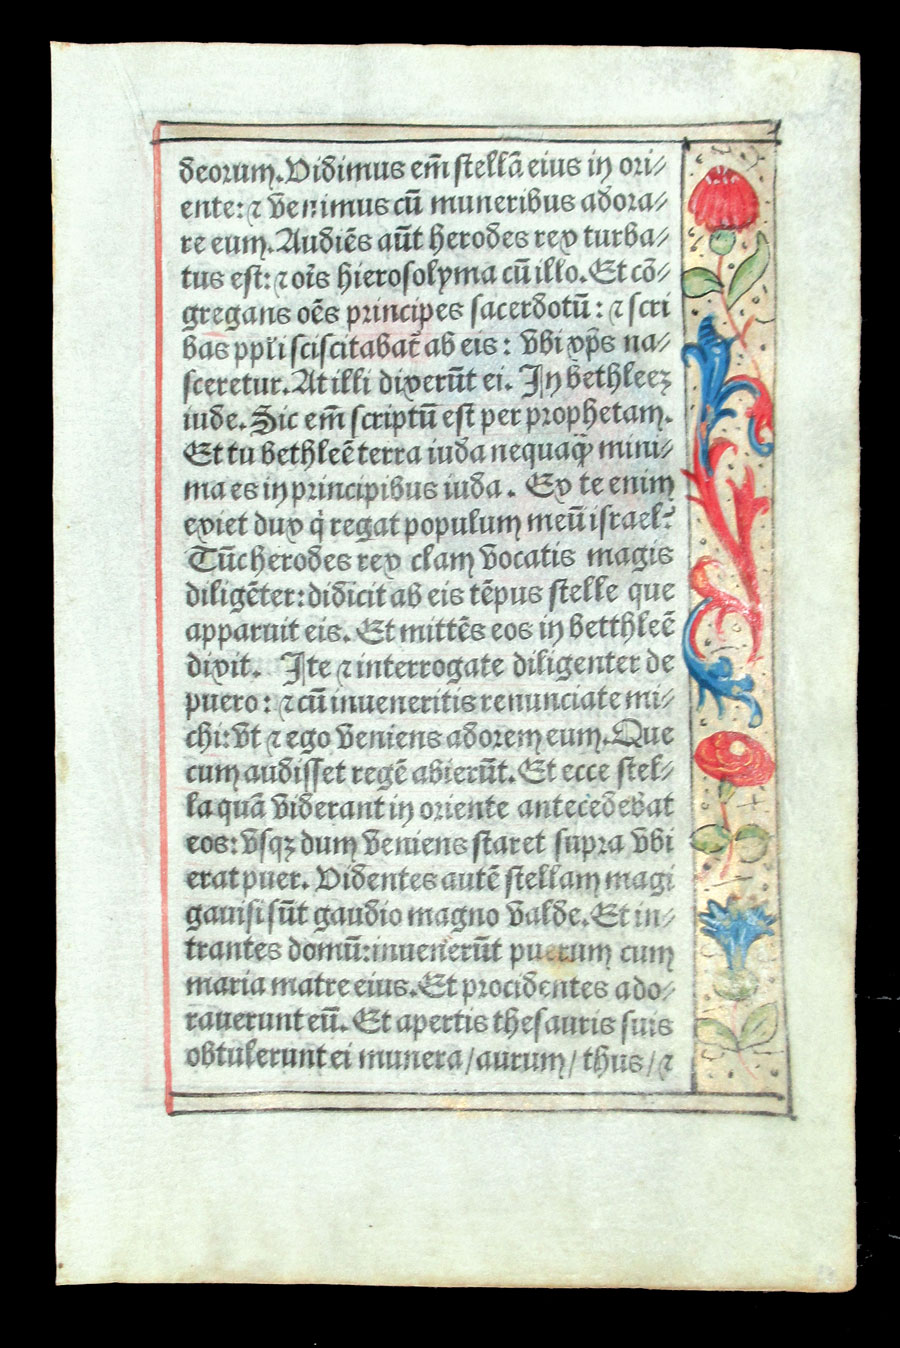 deorum. Vidimus em̄ stellā eius in ori⸗
ente: ⁊ venimus cū muneribus adora⸗
re eum. Audiēs aūt herodes rex turba⸗
tus est: ⁊ oīs hierosolyma cū illo. Et cō⸗
gregans oēs principes sacerdotū: ⁊ scri
bas ppl̄i sciscitabat̄ ab eis: vbi xp̄s na⸗
sceretur. At illi dixerūt ei. In bethleeꝫ
iude. Sic em̄ scriptū est per prophetam.
Et tu bethleē terra iuda nequaꝙ̄ mini⸗
ma es in principibus iuda. Ex te enim
exiet dux q̇ regat populum meū israel?
Tūc herodes rex clam vocatis magis
diligēter: didicit ab eis tēpus stelle que
apparuit eis. Et mittēs eos in betthleē
dixit. Ite ⁊ interrogate diligenter de
puero: ⁊ cū inueneritis renunciate mi⸗
chi: vt ⁊ ego veniens adorem eum. Que
cum audisset regē abierūt. Et ecce stel⸗
la quā viderant in oriente antecedebat
eos: vsqꝫ dum veniens staret supra vbi
erat puer. Videntes autē stellam magi
gauisi sūt gaudio magno valde. Et in⸗
trantes domū: inuenerūt puerum cum
maria matre eius. Et procidentes ado⸗
rauerunt eū. Et apertis thesauris suis
obtulerunt ei munera/ aurum/ thus/ ⁊